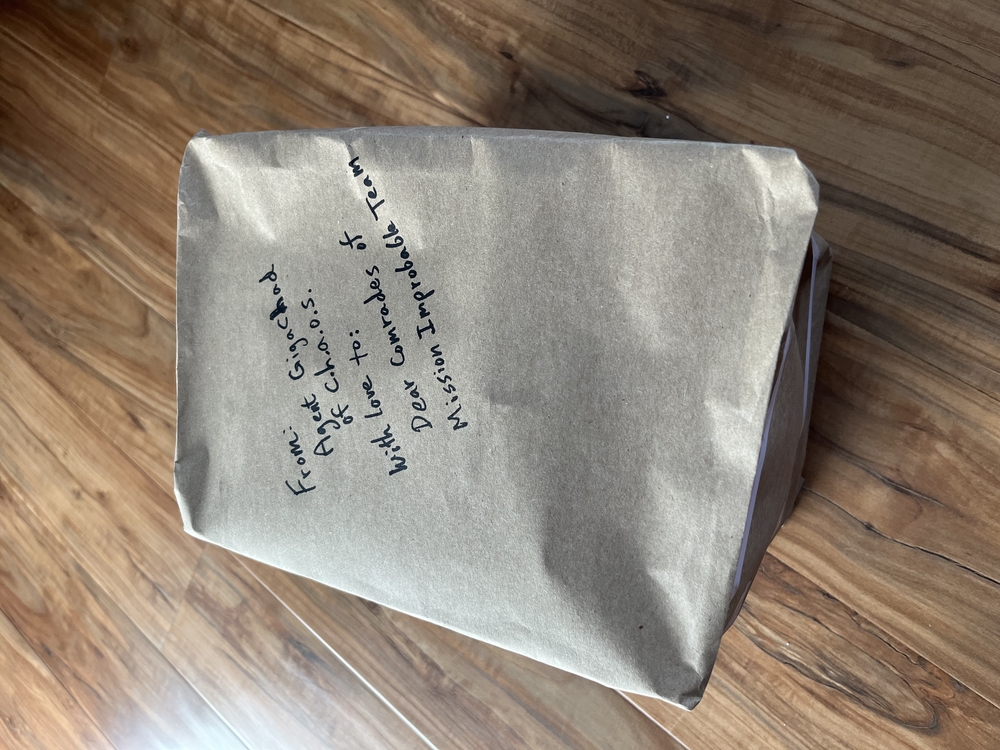 From:
Agent Gigachad
of C.h.a.o.s.
With Love to:
Dear Comrades of
Mission Improbable Team